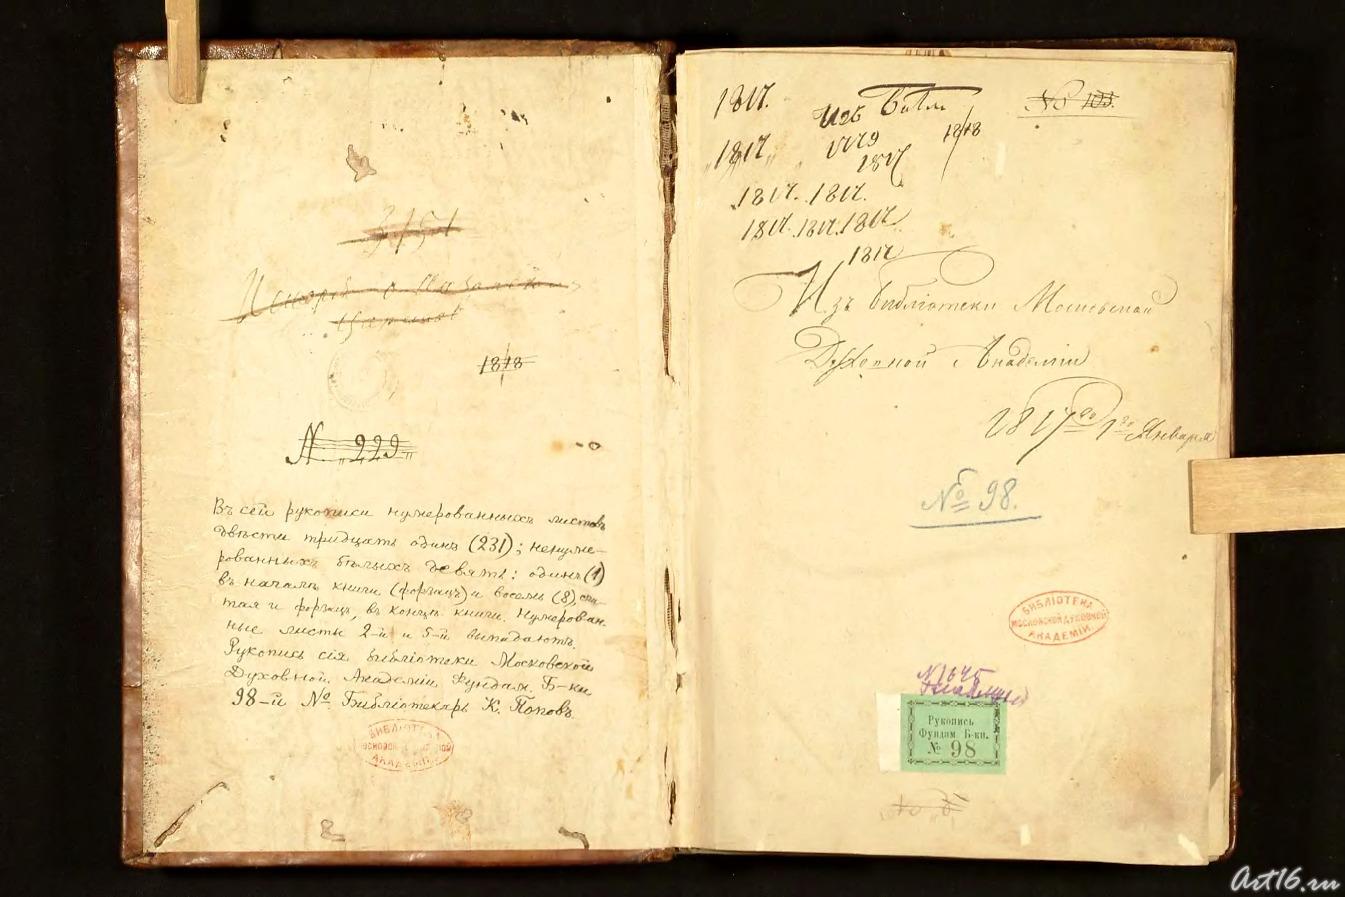 3151
Исторія о Казанскомъ
Царствѣ
1818
№ 229
Въ сей рукописи нумерованныхъ листовъ
двѣсти тридцать одинъ (231); ненуме-
рованныхъ бѣлыхъ девять: одинъ (1)
въ началѣ книги (форзацъ) и восемь (8), счи-
тая и форзацъ, въ концѣ книги. Нумерован-
ные листы 2-й и 5-й выпадаютъ.
Рукопись сія библіотеки Московской
Духовной Академіи Фундам. Б-ки
98-й №. Библіотекарь К. Поповъ.
БИБЛІОТЕКА
МОСКОВСКОЙ ДУХОВНОЙ
АКАДЕМІИ
1817. Изъ Библі № 103.
1817 1817 1818
1817. 1817.
1817. 1817. 1817
1817
Изъ библіотеки Московской
Духовной Академіи
1817 го 1 го Января
№ 98.
БИБЛІОТЕКА
МОСКОВСКОЙ ДУХОВНОЙ
АКАДЕМІИ
N 1645
Рукопись
Фундам. Б-ки.
№ 98
Art16.ru